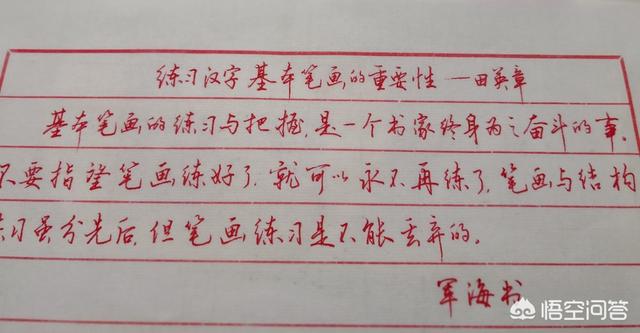 练习汉字基本笔画的重要性 —田英章
基本笔画的练习与把握,是一个书家终身为之奋斗的事。
不要指望笔画练好了,就可以永不再练了,笔画与结构
练习虽分先后,但笔画练习是不能丢弃的。
军海书
悟空问答